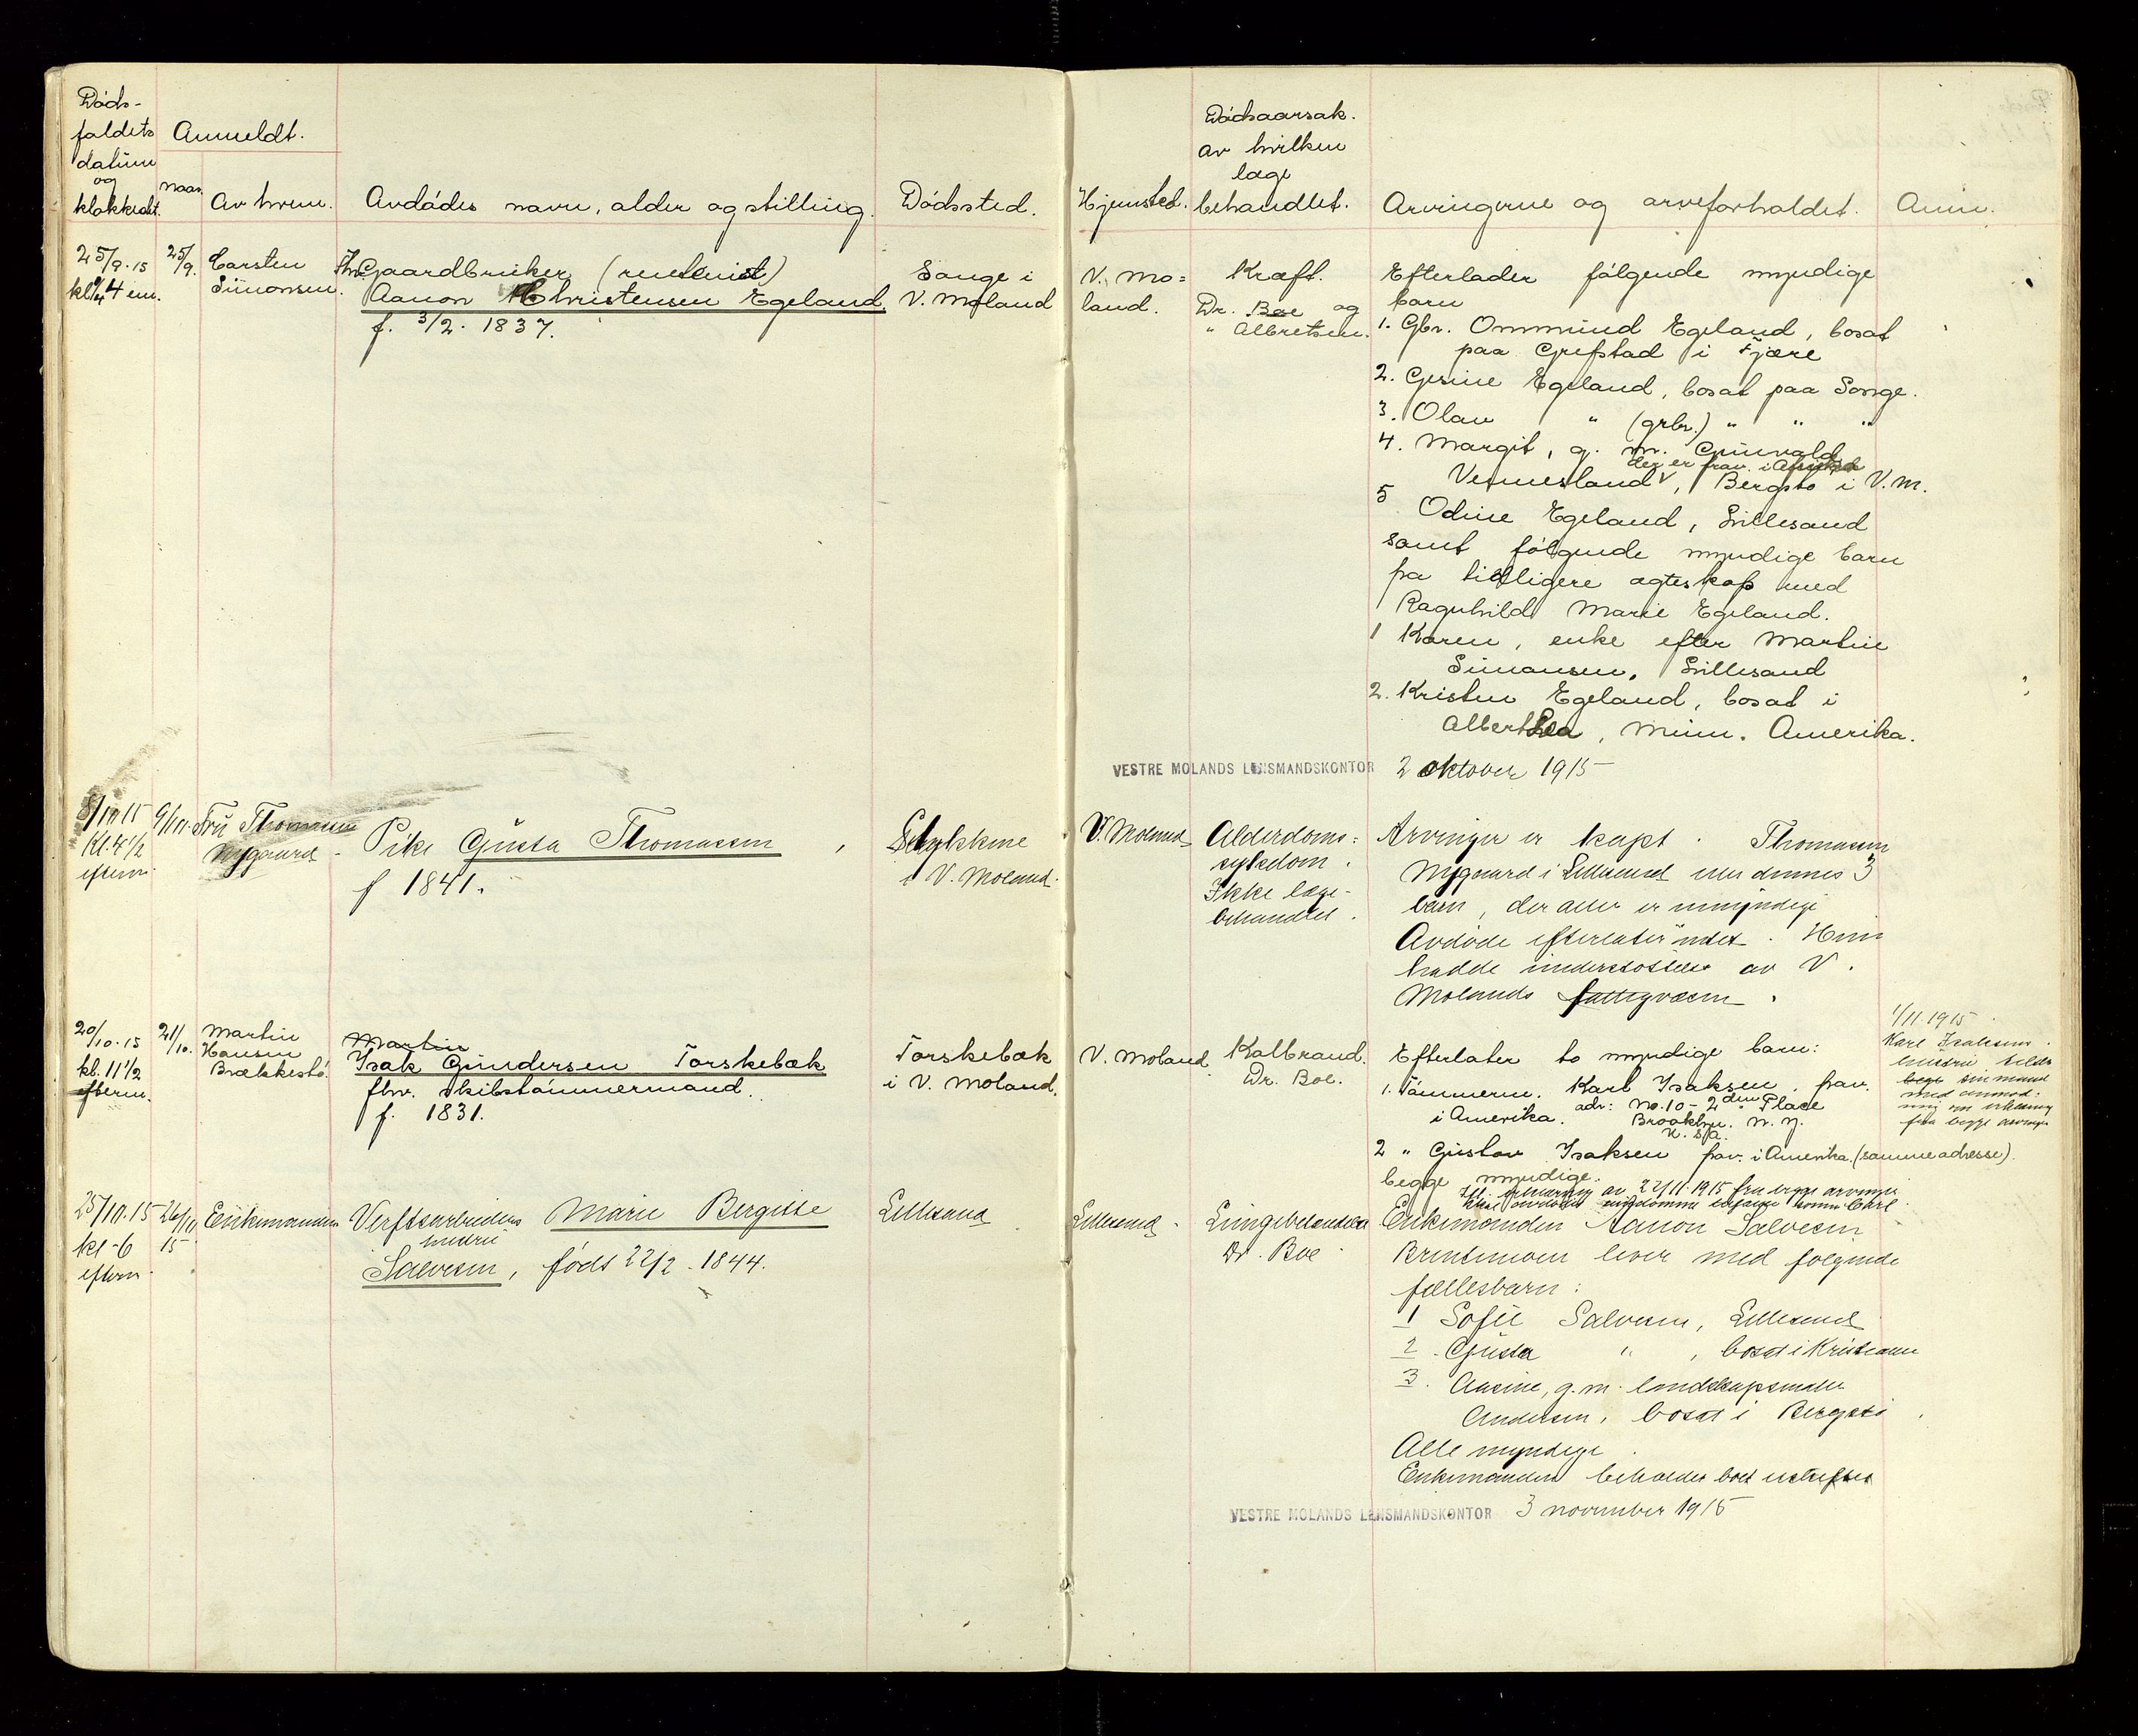 Døds-
faldets
datum
og
klokkeslet.
Anmeldt.
naar.
Av hvem.
Avdødes navn, alder og stilling.
Dødssted.
Hjemsted.
Dødsaarsak.
av hvilken
læge
behandlet.
Arvingerne og arveforholdet.
Anm.
25/9.15
kl. 4 em.
25/9.
Carsten
Simonsen.
Fhv. Gaardbruker (rentenist)
Aanon Christensen Egeland.
f. 3/2. 1837.
Songe i
V. Moland
V. Mo=
land.
Kræft.
Dr. Boe og
" Albretsen.
Efterlader følgende myndige
barn
1. Gbr. Ommund Egeland, bosat
paa Grefstad i Fjære
2. Gesine Egeland, bosat paa Songe.
3. Olav " (grbr.) " " "
4. Margit, g. m. Grunvald
der er frav. i Afrika
Vennesland, Bergstø i V. M.
5 Odine Egeland, Lillesand
samt følgende myndige barn
fra tidligere ægteskap med
Ragnhild Marie Egeland.
1 Karen, enke efter Martin
Simonsen, Lillesand
2. Kristen Egeland, bosat i
Albert Lea, Minn. Amerika.
VESTRE MOLANDS LENSMANDSKONTOR 2 oktober 1915
8/10 15
Kl. 4 1/2
efterm.
9/10.
Fru Thomassen
Nygaard
Pike Gusta Thomassen
f 1841.
i V. Moland.
V. Moland
Alderdoms=
sykdom.
Ikke læge-
behandlet.
Arvinger er kapt. Thomassen
Nygaard i Lillesand
barn, der alle er umyndige
Avdøde efterlater intet. Hun
hadde understøttelse av V.
Molands fattigvæsen.
20/10.15
kl. 11 1/2
efterm.
21/10.
Martin
Hansen
Brækkestø.
Martin
Isak Gundersen Torskebæk
fhv. skibstømmermand.
f. 1831.
Torskebæk
i V. Moland.
V. Moland
Kalbrand.
Dr. Boe.
Efterlater to myndige barn:
1. Tømmerm. Karl Isaksen, frav.
i Amerika. adr: No. 10 - 2den Place
Brooklyn. N. Y.
U. S. A.
2 " Gustav Isaksen frav. i Amerika. (samme adresse).
begge myndige.
1/11.1915
Karl Isaksens
hustru
sin mand
med anmod=
ning om erklæring
fra begge arvinger
erklæring av 22/11 1915 fra begge arvinger
25/10.15
kl-6
efterm.
26/10
15
Enkemanden
Verftsarbeiders Marie Bergitte
hustru
Salvesen, født 22/2. 1844.
Lillesand
Lillesand
Lungebetændelse
Dr. Boe
Enkemanden Aanon Salvesen
lever med følgende
fællesbarn:
1 Sofie Salvesen, Lillesand
2. Gusta " , bosat i Kristiania
3. Aasine, g. m. landskapsmaler
Andersen, bosat i Bergstø
Alle myndige
Enkemanden beholder boet uskiftet
VESTRE MOLANDS LENSMANDSKONTOR 3 november 1915